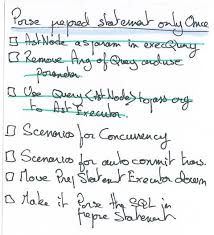 Parse prepared statement only Once
☐ AstNode as param in execQuery
☐ Remove Arg of Query and use
Parameter
☐ Use Query<AstNode> to pass arg
to Ast Executor
☐ Scenarios for Concurrency
☐ Scenarios for auto commit trans.
☐ Move Prep Statement Executor down
☐ Make it Parse the SQL in
Prepare Statement